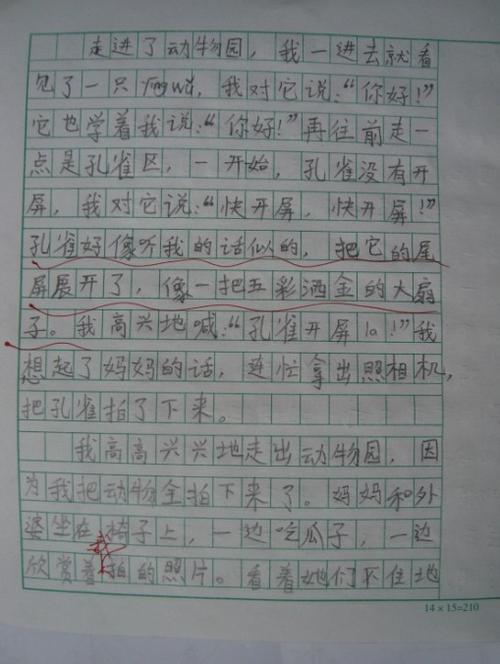 走进了动物园，我一进去就看
见了一只yīngwǔ，我对它说：“你好！”
它也学着我说：“你好！”再往前走一
点是孔雀区，一开始，孔雀没有开
屏，我对它说：“快开屏，快开屏！”
孔雀好像听我的话似的，把它的尾
屏展开了，像一把五彩洒金的大扇
子。我高兴地喊：“孔雀开屏la！”我
想起了妈妈的话，连忙拿出照相机，
把孔雀拍了下来。
我高高兴兴地走出动物园，因
为我把动物全拍下来了。妈妈和外
婆坐在椅子上，一边吃瓜子，一边
欣赏着我拍的照片。看着她们不住地
14×15=210